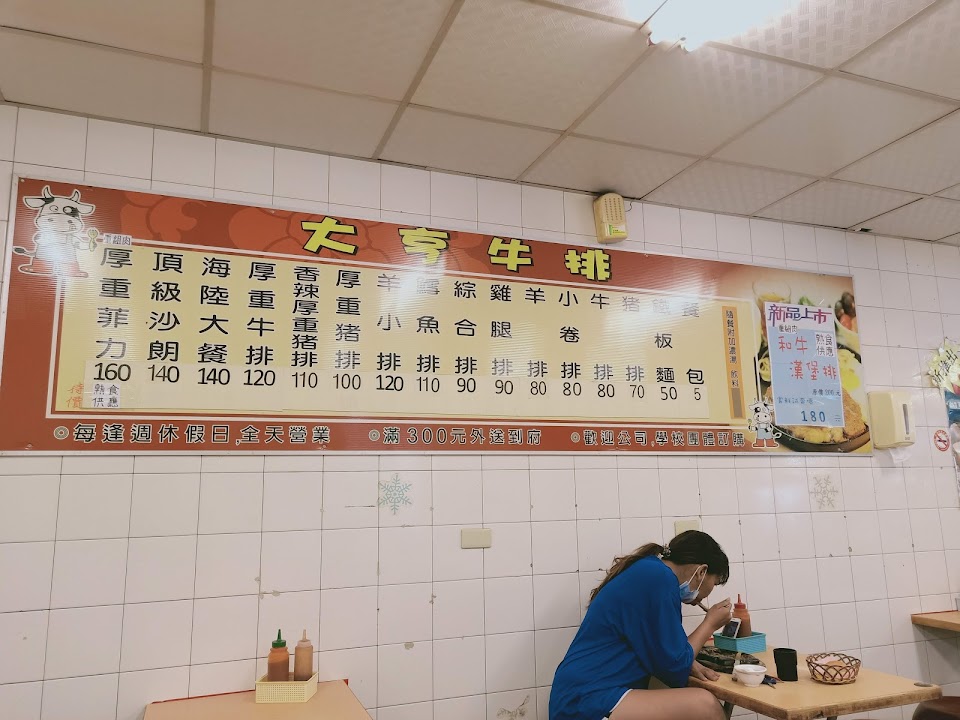 大亨牛排
厚重菲力 160
頂級沙朗 140
海陸大餐 140
厚重牛排 120
香辣厚重豬排 110
厚重豬排 100
羊小排 120
魚排 110
綜合排 90
雞腿排 90
羊排 80
小卷排 80
牛排 80
豬排 70
鐵板麵 50
餐包 5
熟食供應
隨餐附加濃湯、飲料
新品上市
和牛漢堡排
熟食供應
180
◎每逢週休假日,全天營業
◎滿300元外送到府
◎歡迎公司,學校團體訂購